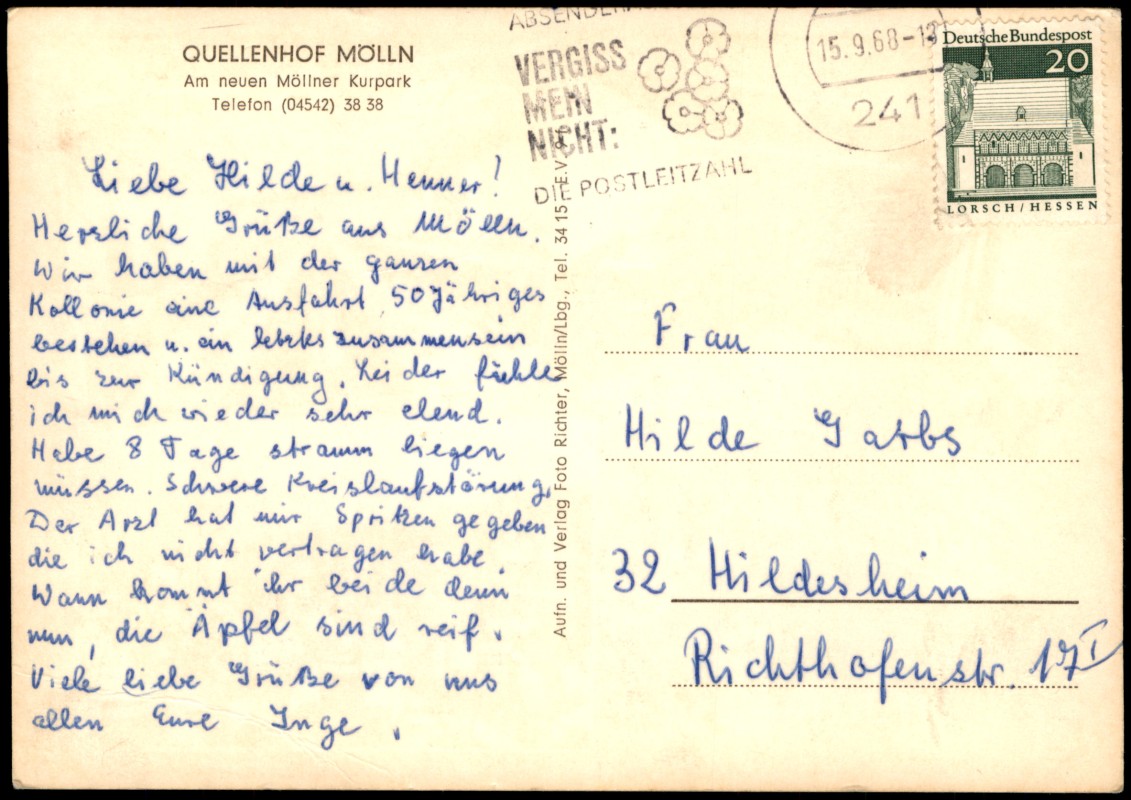 QUELLENHOF MÖLLN
Am neuen Möllner Kurpark
Telefon (04542) 38 38
VERGISS
MEIN
NICHT:
DIE POSTLEITZAHL
15.9.68-
241
Deutsche Bundespost
20
LORSCH/HESSEN
Liebe Hilde u. Henner!
Herzliche Grüße aus Mölln.
Wir haben mit der ganzen
Kollonie eine Ausfahrt, 50 Jähriges
bestehen u. ein letztes zusammensein
bis zur Kündigung. Leider fühle
ich mich wieder sehr elend.
Habe 8 Tage stramm liegen
müssen. Schwere Kreislaufstörung,
Der Arzt hat mir Spritzen gegeben
die ich nicht vertragen habe.
Wann kommt ihr beide denn
nun, die Äpfel sind reif.
Viele liebe Grüße von uns
allen Eure Inge.
Aufn. und Verlag Foto Richter, Mölln/Lbg., Tel. 34 15
Frau
Hilde Garbs
32 Hildesheim
Richthofenstr. 17 I